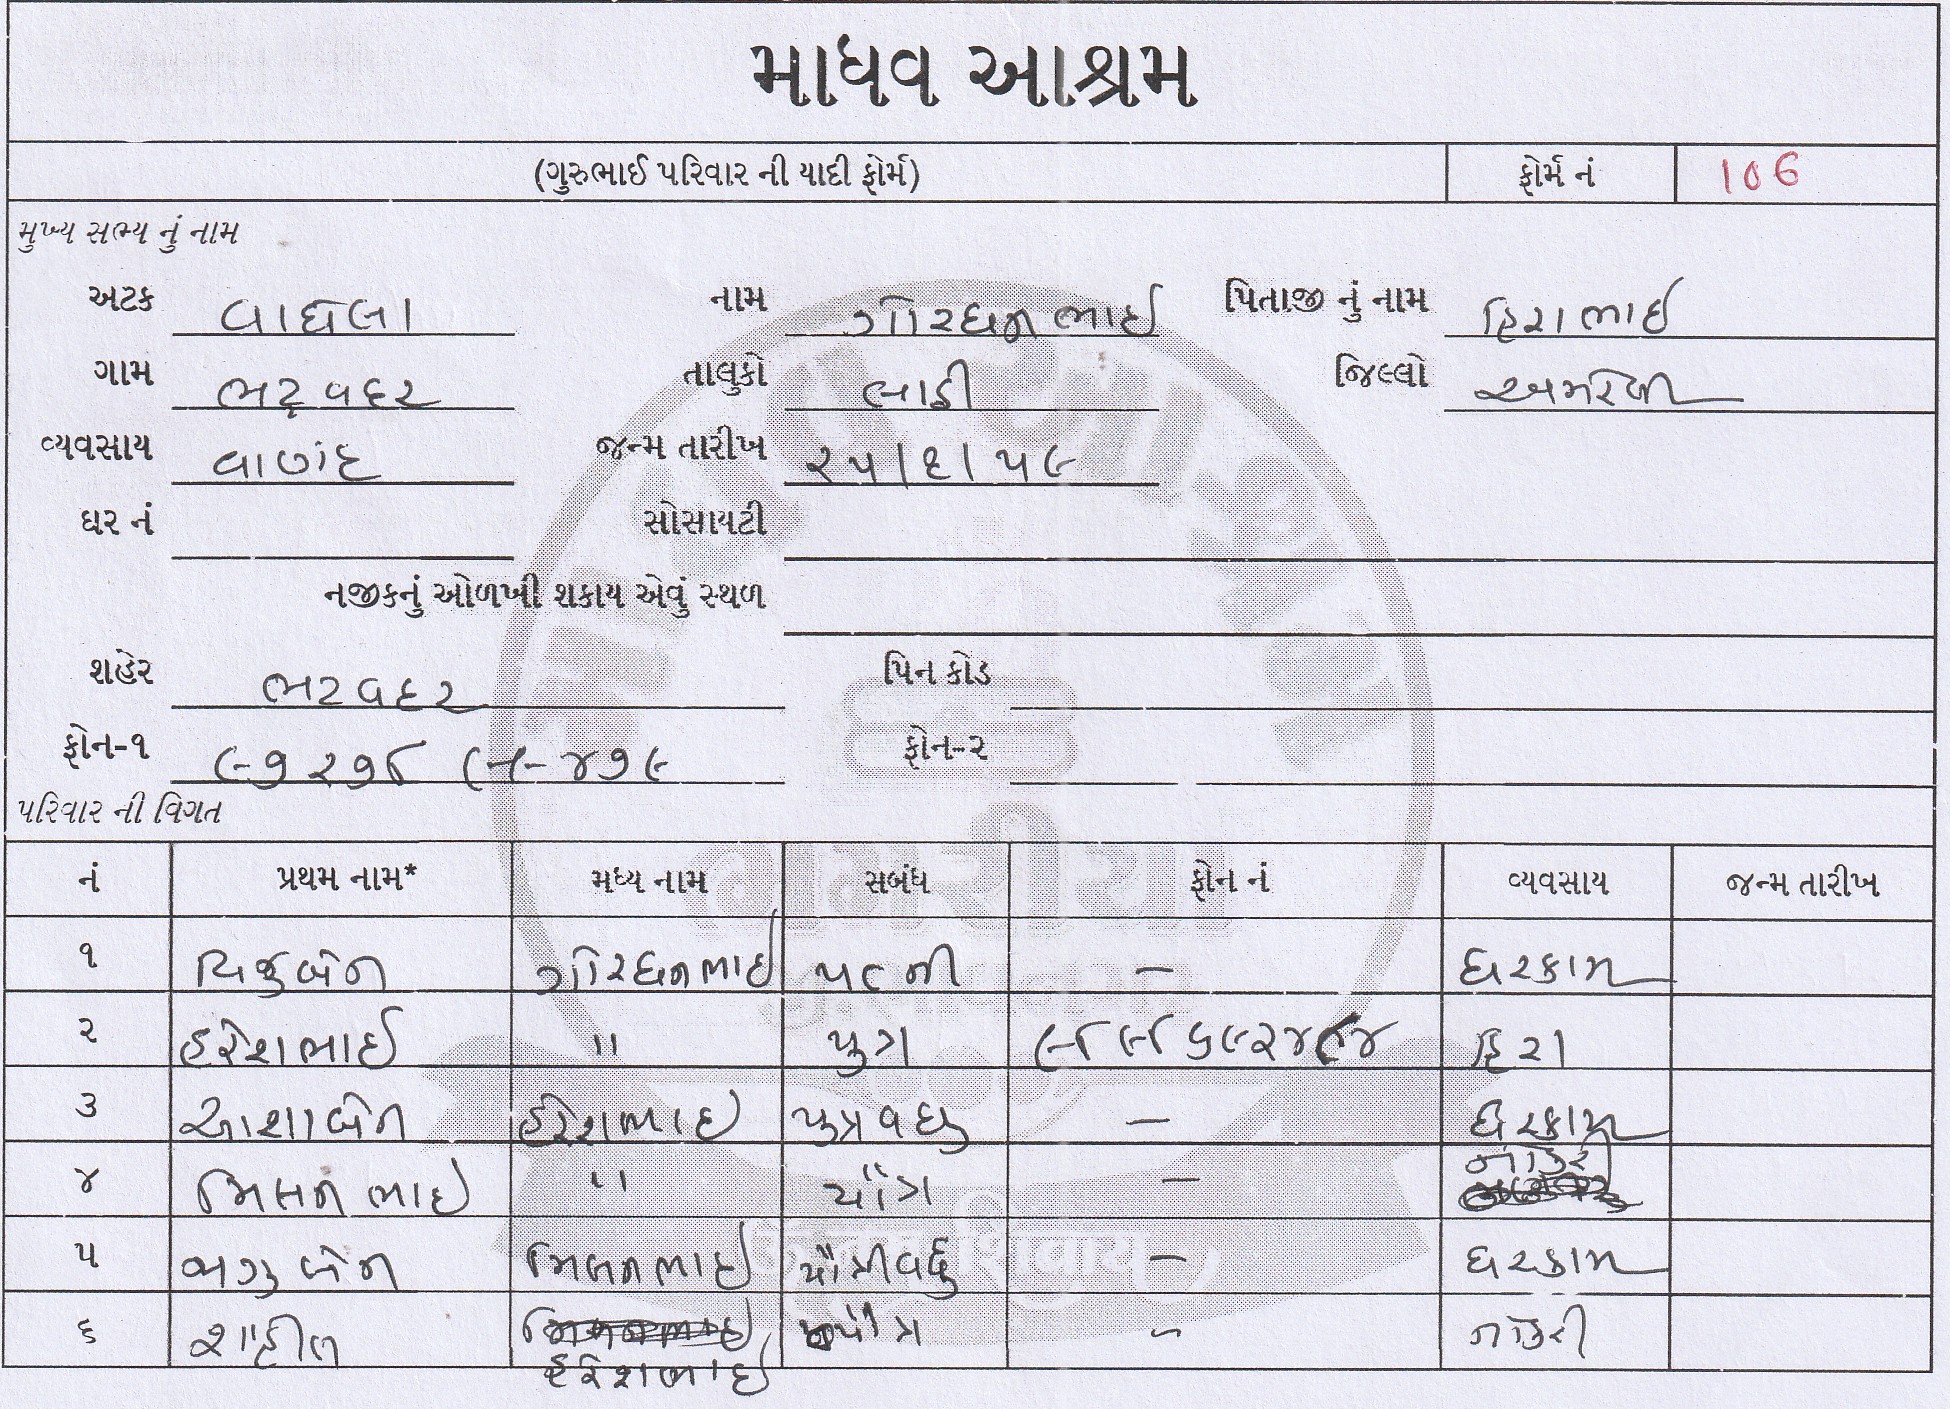 માધવ આશ્રમ
(ગુરુભાઈ પરિવાર ની યાદી ફોર્મ) ફોર્મ નં 106
મુખ્ય સભ્ય નું નામ
અટક વાઘેલા નામ ગોરધનભાઈ પિતાજી નું નામ હિરાભાઈ
ગામ ભટ્ટવદર તાલુકો લાઠી જિલ્લો અમરેલી
વ્યવસાય વાળંદ જન્મ તારીખ ૨૫/૬/૫૯
ઘર નં સોસાયટી
નજીકનું ઓળખી શકાય એવું સ્થળ
શહેર ભટવદર પિન કોડ
ફોન-૧ ફોન-૨
પરિવાર ની વિગત
નં પ્રથમ નામ* મધ્ય નામ સબંધ ફોન નં વ્યવસાય જન્મ તારીખ
૧ ગોરધનભાઈ પત્ની – ઘરકામ
૨ હરેશભાઈ " પુત્ર હિરા
૩ આશાબેન હરેશભાઇ પુત્રવધુ – ઘરકામ
૪ મિલનભાઇ " પૌત્ર – નોકરી
૫ મિલનભાઇ – ઘરકામ
૬ પૌત્ર – નોકરી
હરેશભાઈ